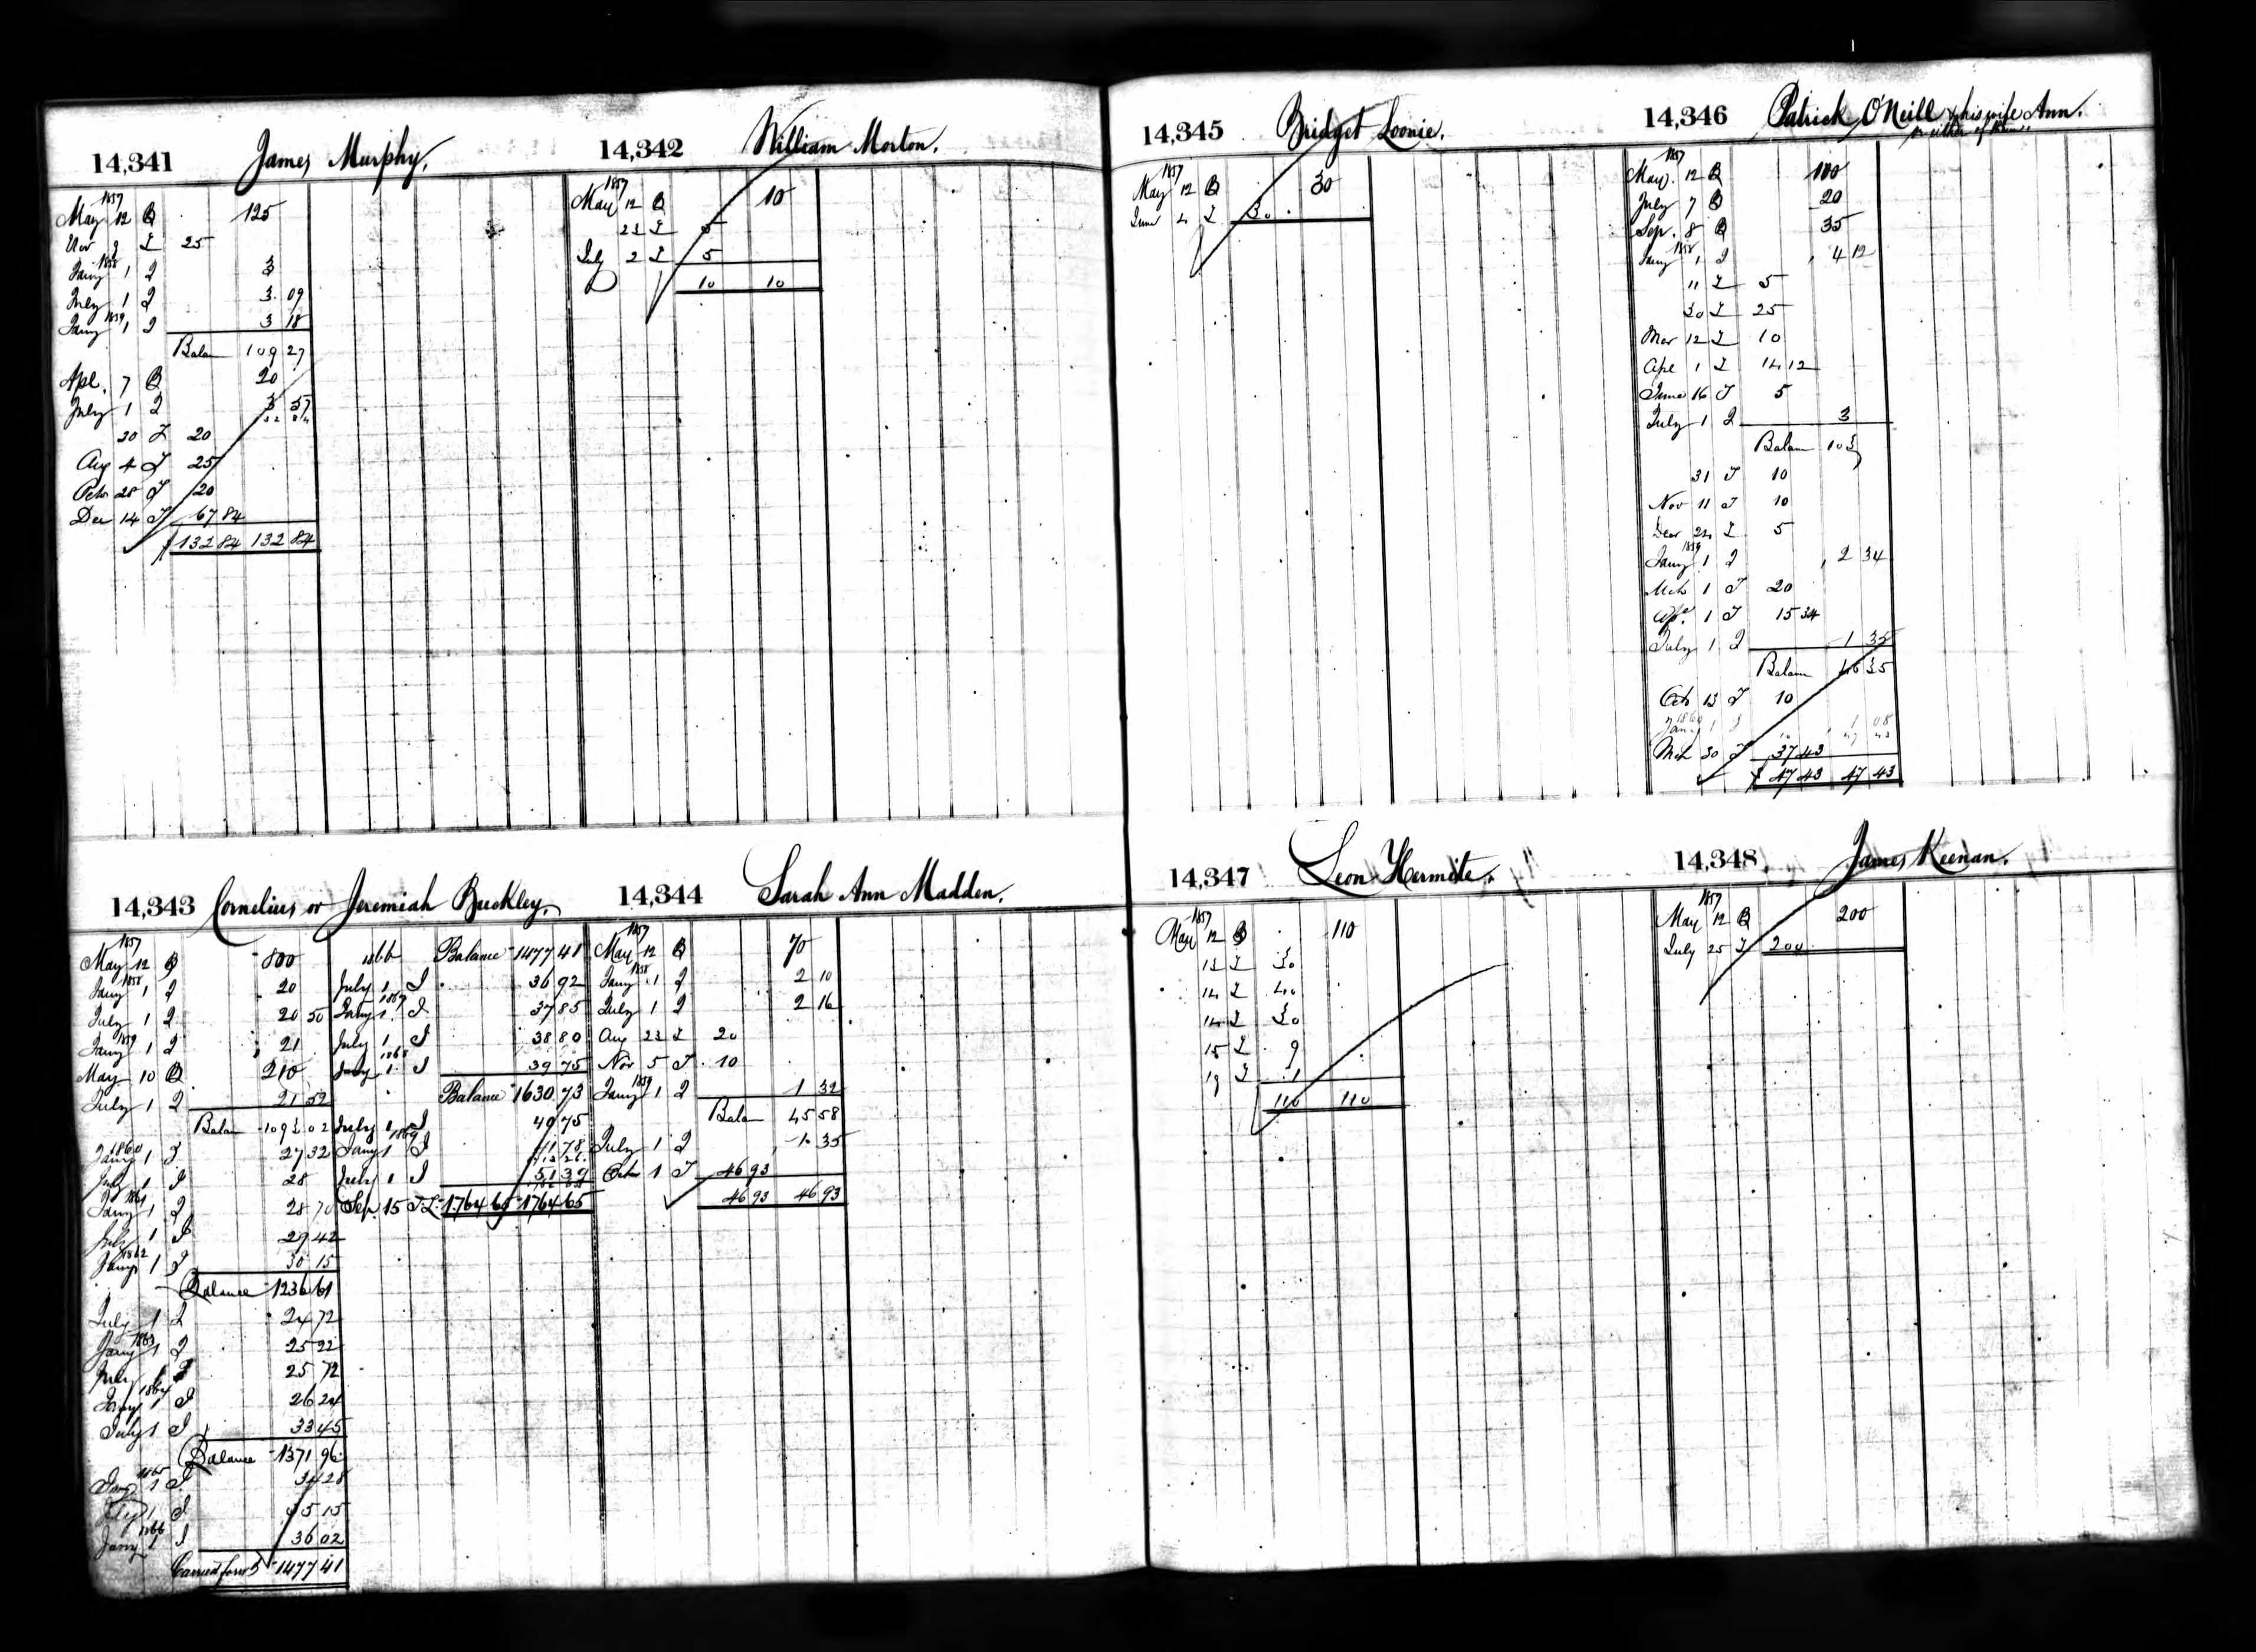 14,341 James Murphy.
1857
May 12 125
Nov 9 25
1858
Jany 1 3
July 1 3 09
1859
Jany 1 3 18
Balan 109 27
Apl. 7 20
July 1 3 57
20 20
Aug 4 25
Octr 28 20
Der 14 67 84
132 84 132 84
14,342 William Morton.
1857
May 12 10
23 5
July 2 5
10 10
14,343 Cornelius or Jeremiah Buckley.
1857
May 12 800
1858
Jany 1 20
July 1 20 50
1859
Jany 1 21
May 10 210
July 1 21 52
Balan 1093 02
1860
Jany 1 27 32
July 1 28
1861
Jany 1 28 70
July 1 29 42
1862
Jany 1 30 15
Balance 1236 61
July 1 24 72
1863
Jany 1 25 22
July 1 25 72
1864
Jany 1 26 24
July 1 33 45
Balance 1371 96
1865
Jany 1 34 28
July 1 35 15
1866
Jany 1 36 02
Carried forwd 1477 41
1866 Balance 1477 41
July 1 36 92
1867
Jany 1 37 85
July 1 38 80
1868
Jany 1 39 75
Balance 1630 73
July 1 40 75
1869
Jany 1 41 78
July 1 51 39
Sep. 15 1764 65 1764 65
14,344 Sarah Ann Madden.
1857
May 12 70
1858
Jany 1 2 10
July 1 2 16
Aug 23 20
Nov 5 10
1859
Jany 1 1 32
Balan 45 58
July 1 1 35
Octr 1 46 93
46 93 46 93
14,345 Bridget Loonie.
1857
May 12 30
June 4 30
14,346 Patrick O'Neill & his wife Ann.
or either of them
1857
May 12 100
July 7 20
Sep. 8 35
1858
Jany 1 4 12
11 5
30 25
Mar 12 10
Apl 1 14 12
June 16 5
July 1 3
Balan 103
31 10
Nov 11 10
Decr 24 5
1859
Jany 1 2 34
Mch 1 20
Apl. 1 15 34
July 1 1 35
Balan 46 35
Octr 13 10
1860
Jany 1 1 08
Mch 30 37 43
47 43 47 43
14,347 Leon Hermite.
1857
May 12 110
13 30
14 40
14 30
15 9
19 1
110 110
14,348 James Keenan.
1857
May 12 200
July 25 200